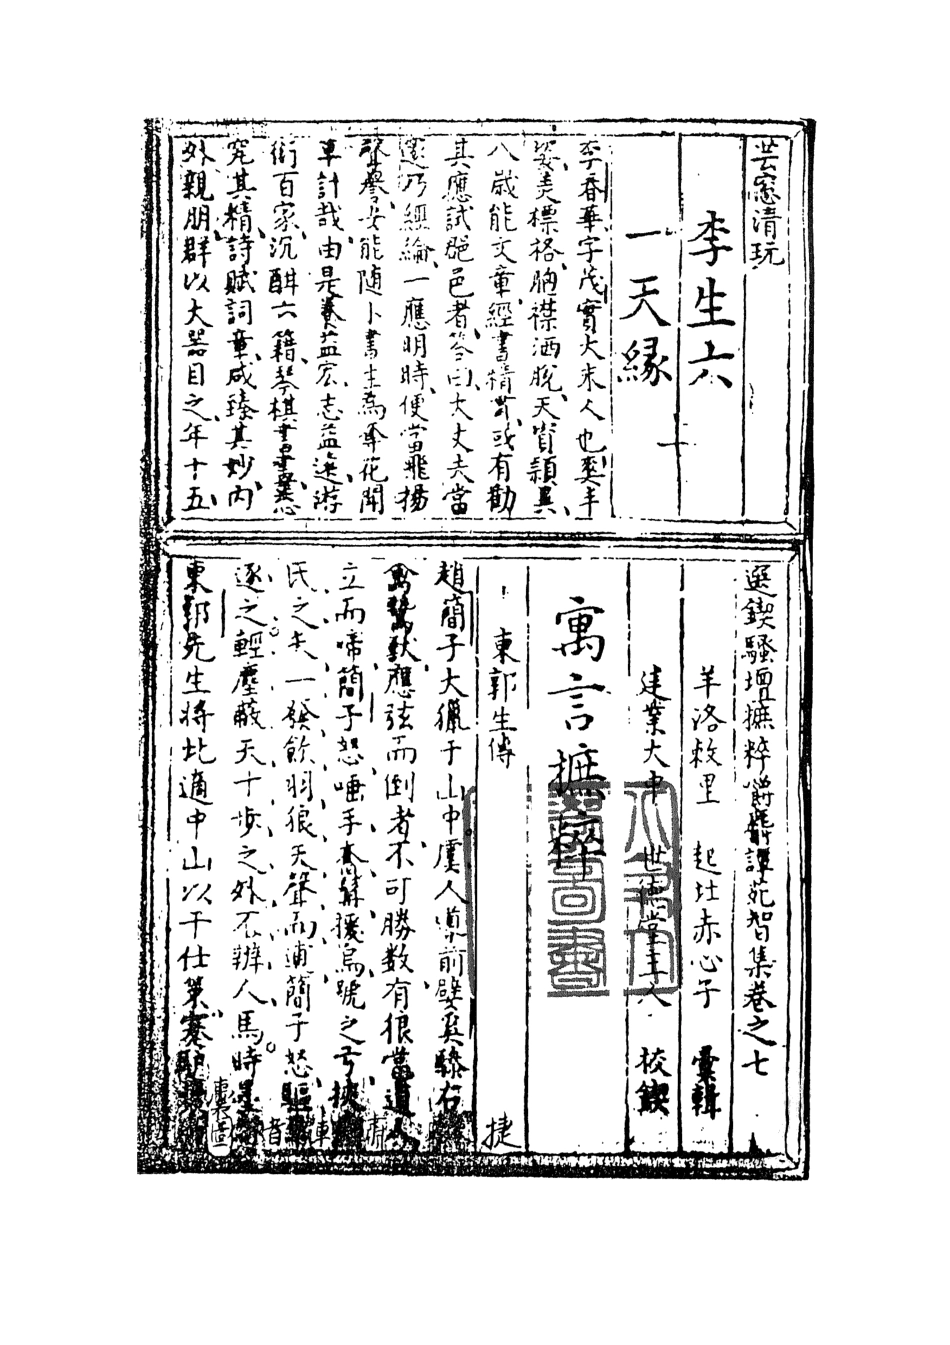 芸窓清玩
李生六
一天緣
李春華字茂實大末人也
姿美標格胸襟洒脫天資頴異
八歲能文章經書精貫或有勸
其應試邑者答曰大丈夫當
經綸一應明時便當飛揚
聲譽安能隨卜書生為爭花聞
草計哉由是養益宏志益遠游
衍百家沉酣六籍琴棋書畫悉
究其精詩賦詞章咸臻其妙內
外親朋群以大器目之年十五
選鍥騷壇摭粹嚼麝譚苑智集卷之七
羊洛敉里 起北赤心子 彙輯
建業大中 世德堂主人 校鍥
寓言摭粹
東郭生傳
趙簡子大獵于山中虞人導前嬖奚驂右
鷙獸應弦而倒者不可勝数有狼當道人
立而啼簡子怒唾手奮髯援烏號之弓挾
氏之矢一發飲羽狼失聲而逋簡子怒驅
逐之輕塵蔽天十步之外不辨人馬時
東郭先生將北適中山以干仕策蹇驢